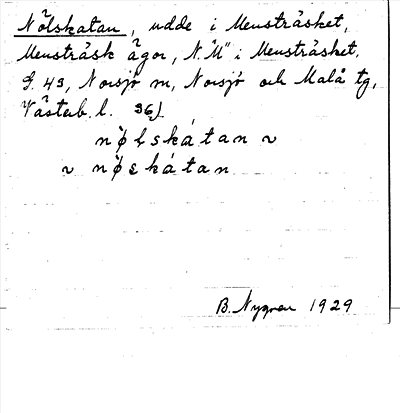 Nölskatan, udde i Mensträsket,
Mensträsk ägor, "N.M" i Mensträsket.
S. 43, Norsjö sn, Norsjö och Malå tg,
Västerb. l. 36)
nølskátan ~
~ nøskátan
B. Nygren 1929